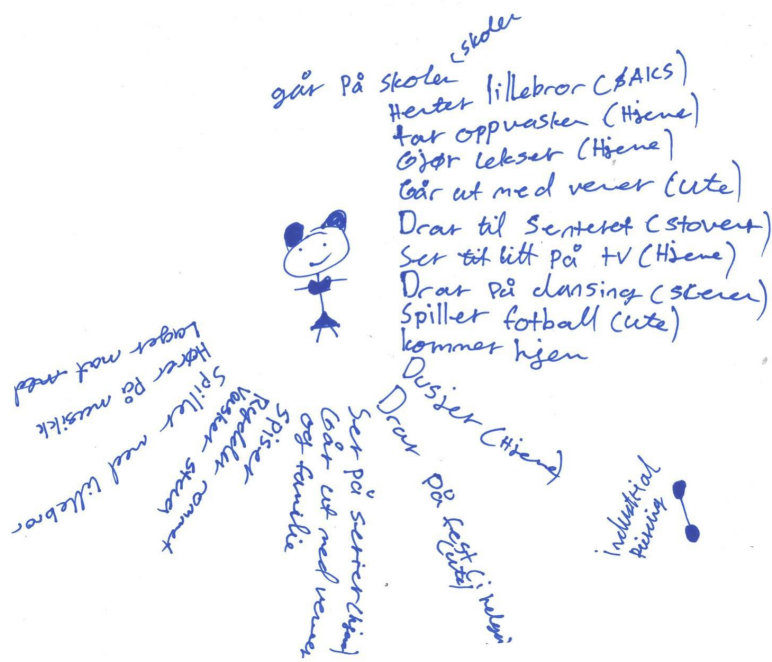 går på skolen (skolen
Henter lillebror (BAKS)
tar oppvasken (Hjene)
Gjør lekser (Hjene)
Går ut med vener (ute)
Drar til Senteret (Stovert)
Ser litt på tv (Hjene)
Drar på dansing (skeren)
Spiller fotball (ute)
kommer hjen
Dusjer (Hjene)
Drar på fest (i helgen
(ute)
Ser på serier (hjem)
Går ut med venner
og familie
Spiser
Rydder rommet
Vasker stena
Spiller med lillebror
Hører på musikk
Lager mat med
industrial
Piercing